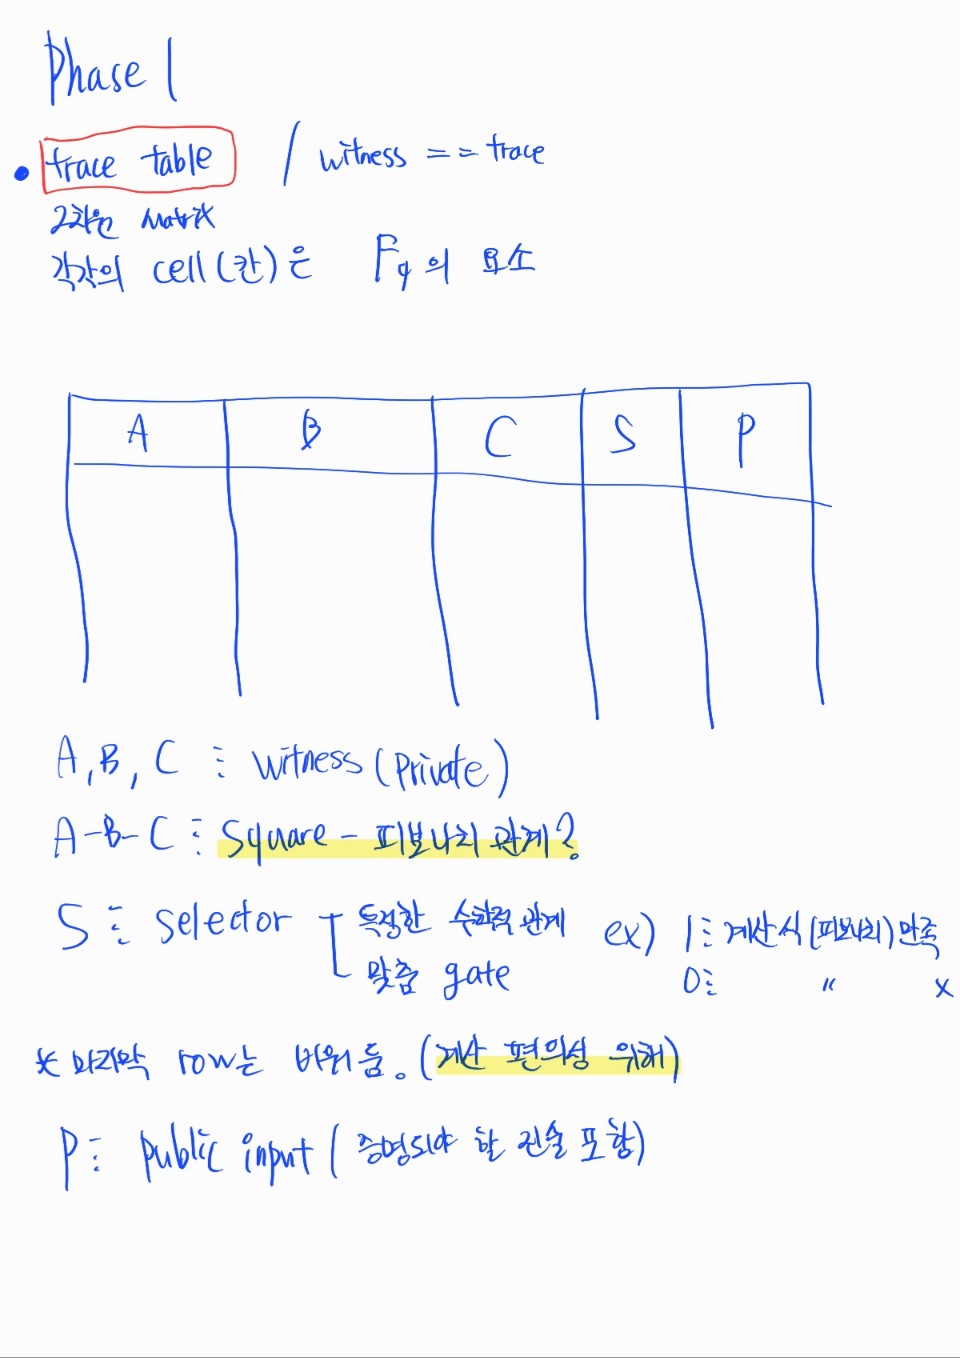 Phase 1
• trace table / witness == trace
2차원 Matrix
각각의 cell(칸)은 Fq의 요소
A B C S P
A, B, C : witness (private)
A-B-C : Square - 피보나치 관계?
S : selector 특정한 수학적 관계 ex) 1 : 계산식(피보나치) 만족
맞춤 gate 0 : " x
* 마지막 row는 비워둠. (계산 편의성 위해)
P : public input ( 증명되야 할 진술 포함)